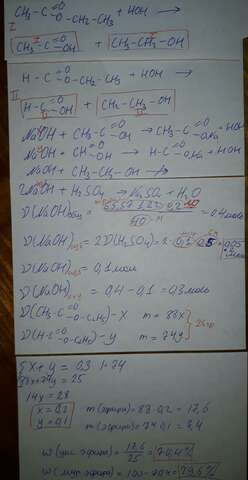 CH₃-C(=O)-O-CH₂-CH₃ + HOH →
I
CH₃-C(=O)-OH + CH₃-CH₂-OH
H-C(=O)-O-CH₂-CH₃ + HOH →
II
H-C(=O)-OH + CH₃-CH₂-OH
NaOH + CH₃-C(=O)-OH → CH₃-C(=O)-ONa + HOH
NaOH + CH(=O)-OH → H-C(=O)-ONa + HOH
NaOH + CH₃-CH₂-OH
2NaOH + H₂SO₄ → Na₂SO₄ + H₂O
= 0,4 моль
ν(NaOH) = 2ν(H₂SO₄) = 2·
ν(NaOH) = 0,1 моль
ν(NaOH) = 0,4 - 0,1 = 0,3 моль
ν(CH₃-C(=O)-O-C₂H₅) - x m = 88x
ν(H-C(=O)-O-C₂H₅) - y m = 74y
x + y = 0,3 |·74
88x + 74y = 25
14y = 2,8
x = 0,2 m(эфира) = 88·0,2 = 17,6
y = 0,1 m(эфира) = 74·0,1 = 7,4
w(укс эфира) = 17,6/25 = 70,4%
w(мур эфира) = 100 - 70,4 = 29,6%